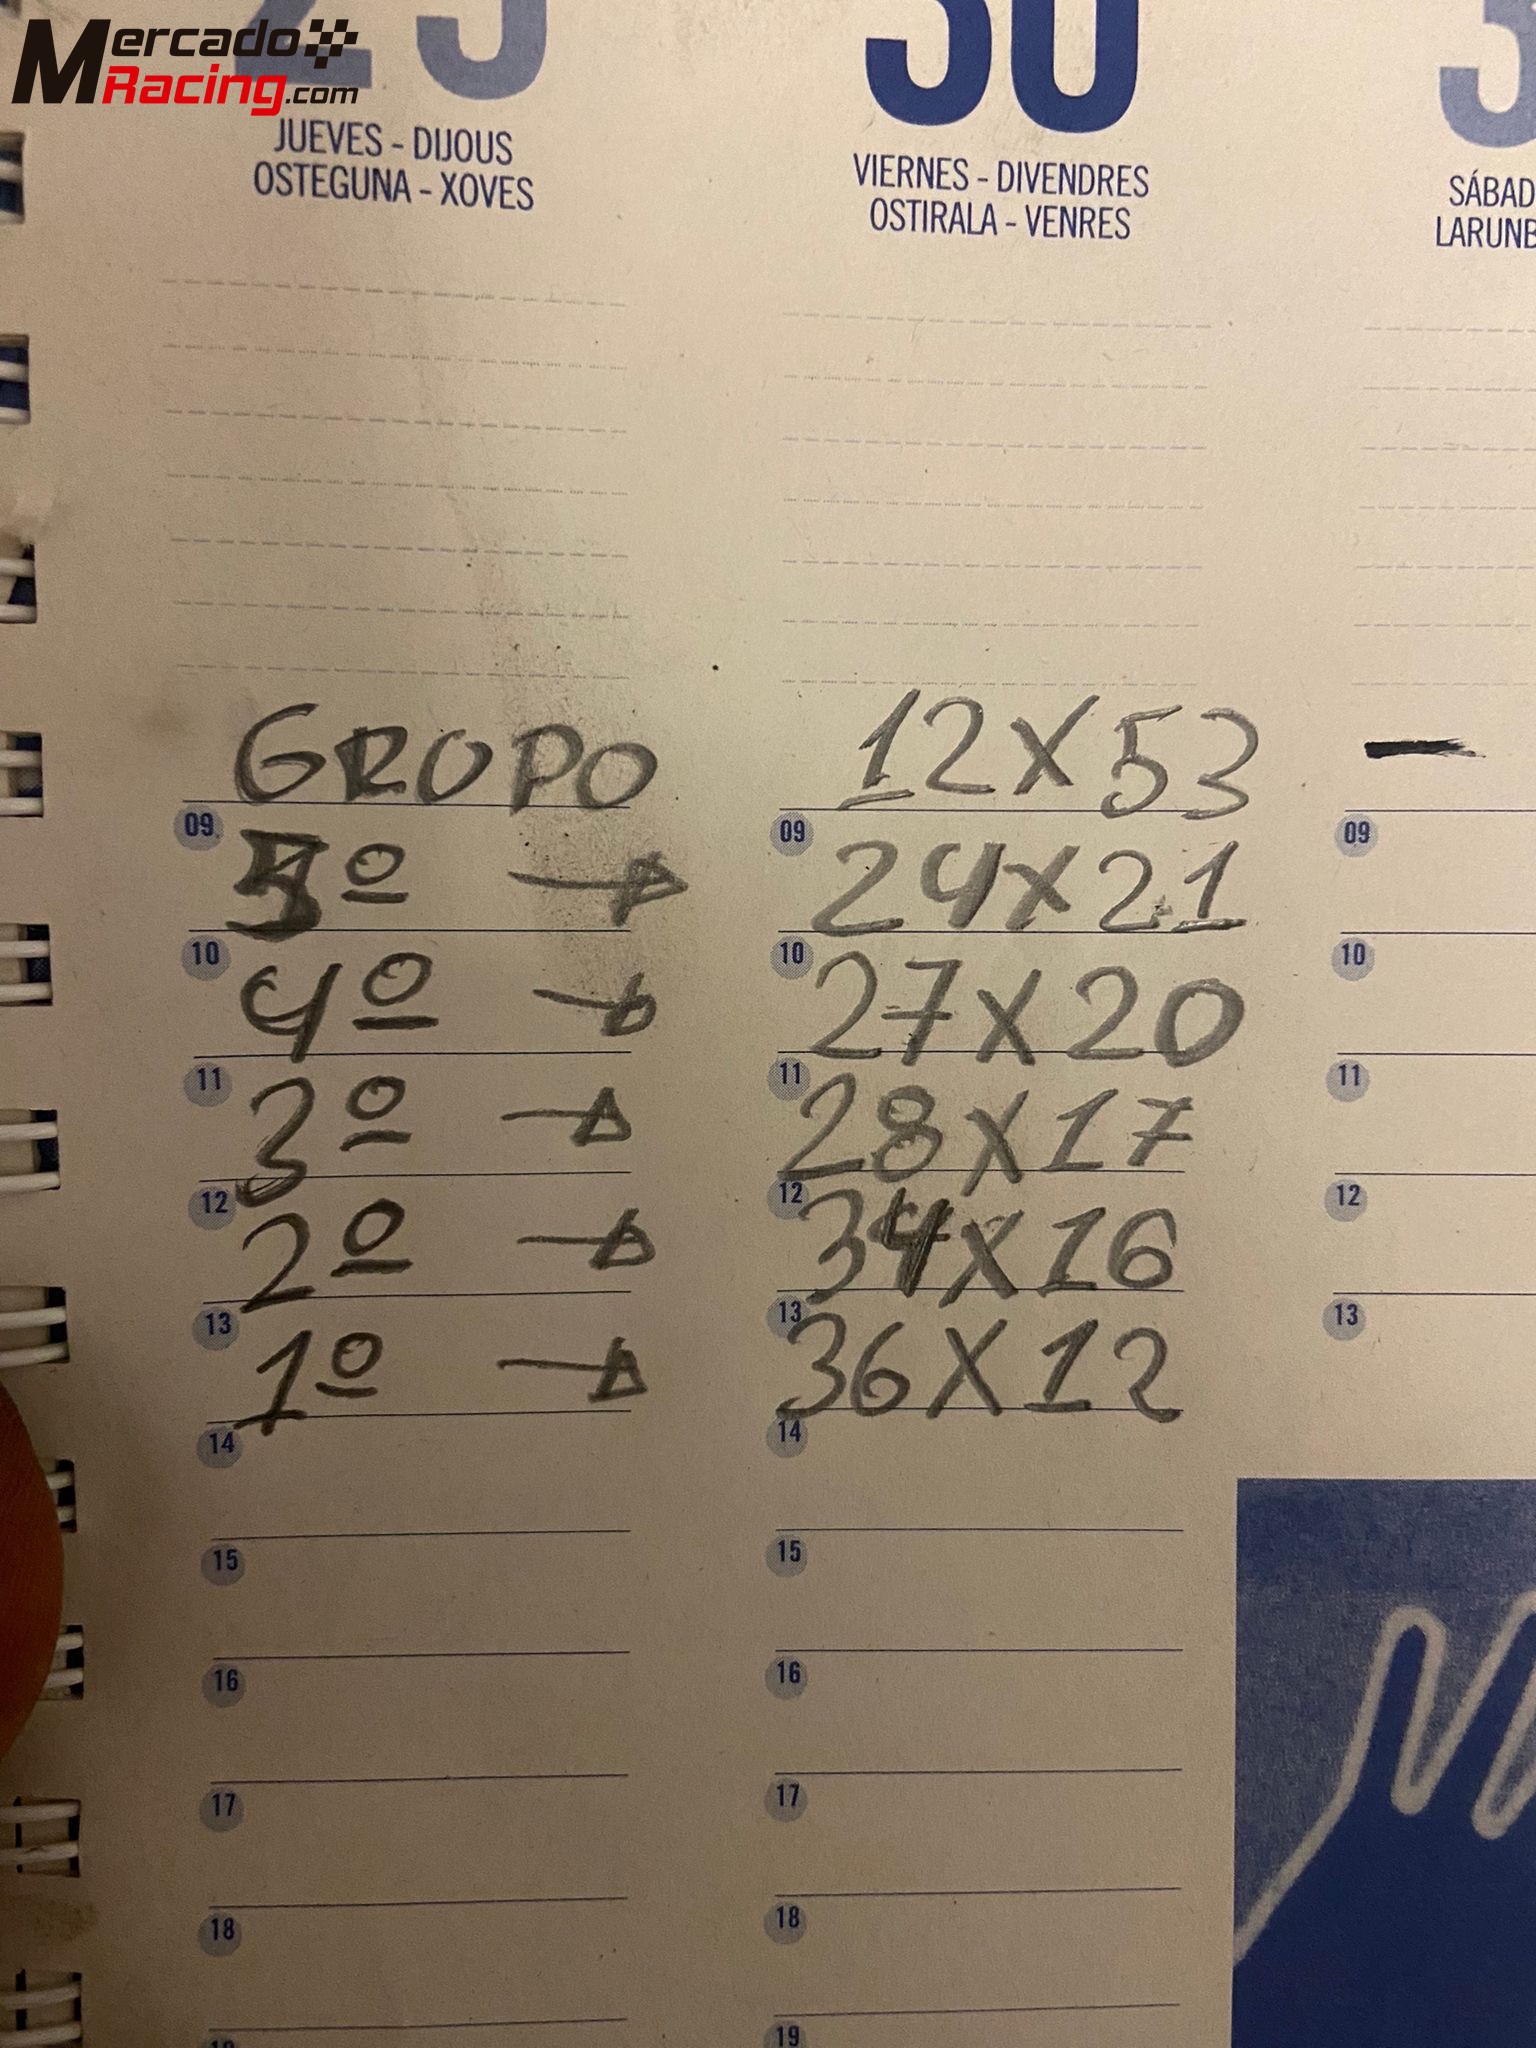 Mercado
Racing.com
29
30
3
JUEVES - DIJOUS
OSTEGUNA - XOVES
VIERNES - DIVENDRES
OSTIRALA - VENRES
SÁBAD
LARUNB
GRUPO 12X53 -
09 09 09
5º → 24X21
10 10 10
4º → 27X20
11 11 11
3º → 28X17
12 12 12
2º → 34X16
13 13 13
1º → 36X12
14 14
15 15
16 16
17 17
18 18
19